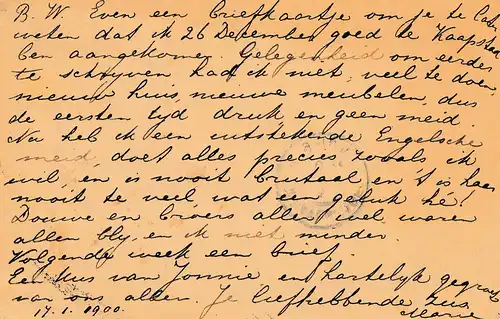 B. W. Even een briefkaartje om je te laten
weten dat ik 26 December goed te Kaapstad
ben aangekomen. Gelegenheid om eerder
te schrijven had ik niet, veel te doen,
nieuw huis, nieuwe meubelen, dus
de eersten tyd druk, en geen meid.
Nu heb ik een uitstekende Engelsche
meid, doet alles precies zooals ik
wil, en is nooit brutaal en 't is haar
nooit te veel, wat een geluk hé!
Douwe en broers alles wel, waren
allen bly, en ik niet minder.
Volgende week een brief.
Een kus van Jonnie en hartelyk gegroet
van ons allen. Je liefhebbende zus
Marie
17.1.1900.